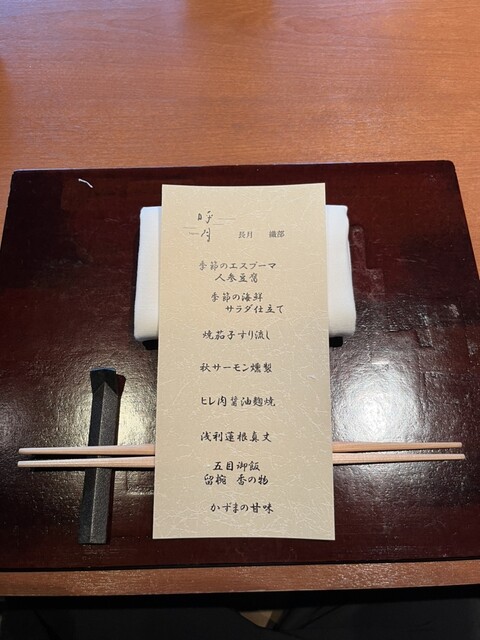 長月 織部
季節のエスプーマ
人参豆腐
季節の海鮮
サラダ仕立て
焼茄子すり流し
秋サーモン燻製
ヒレ肉醤油麹焼
浅利蓮根真丈
五目御飯
留椀 香の物
かずまの甘味